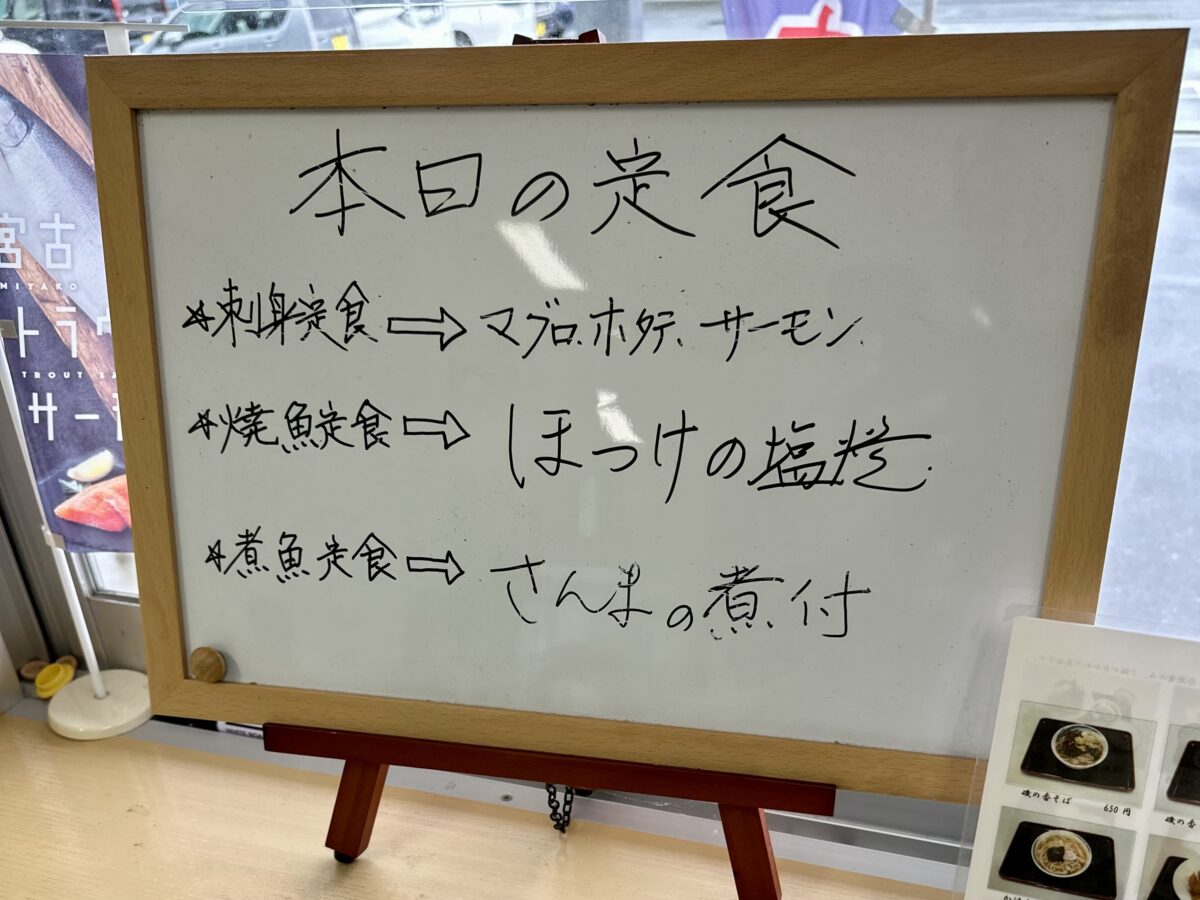 本日の定食
☆刺身定食⇨マグロ、ホタテ、サーモン
☆焼魚定食⇨ほっけの塩焼
☆煮魚定食⇨さんまの煮付
宮古
MIYAKO
トラウ
TROUT SA
サー
磯の香そば 650円
磯の香